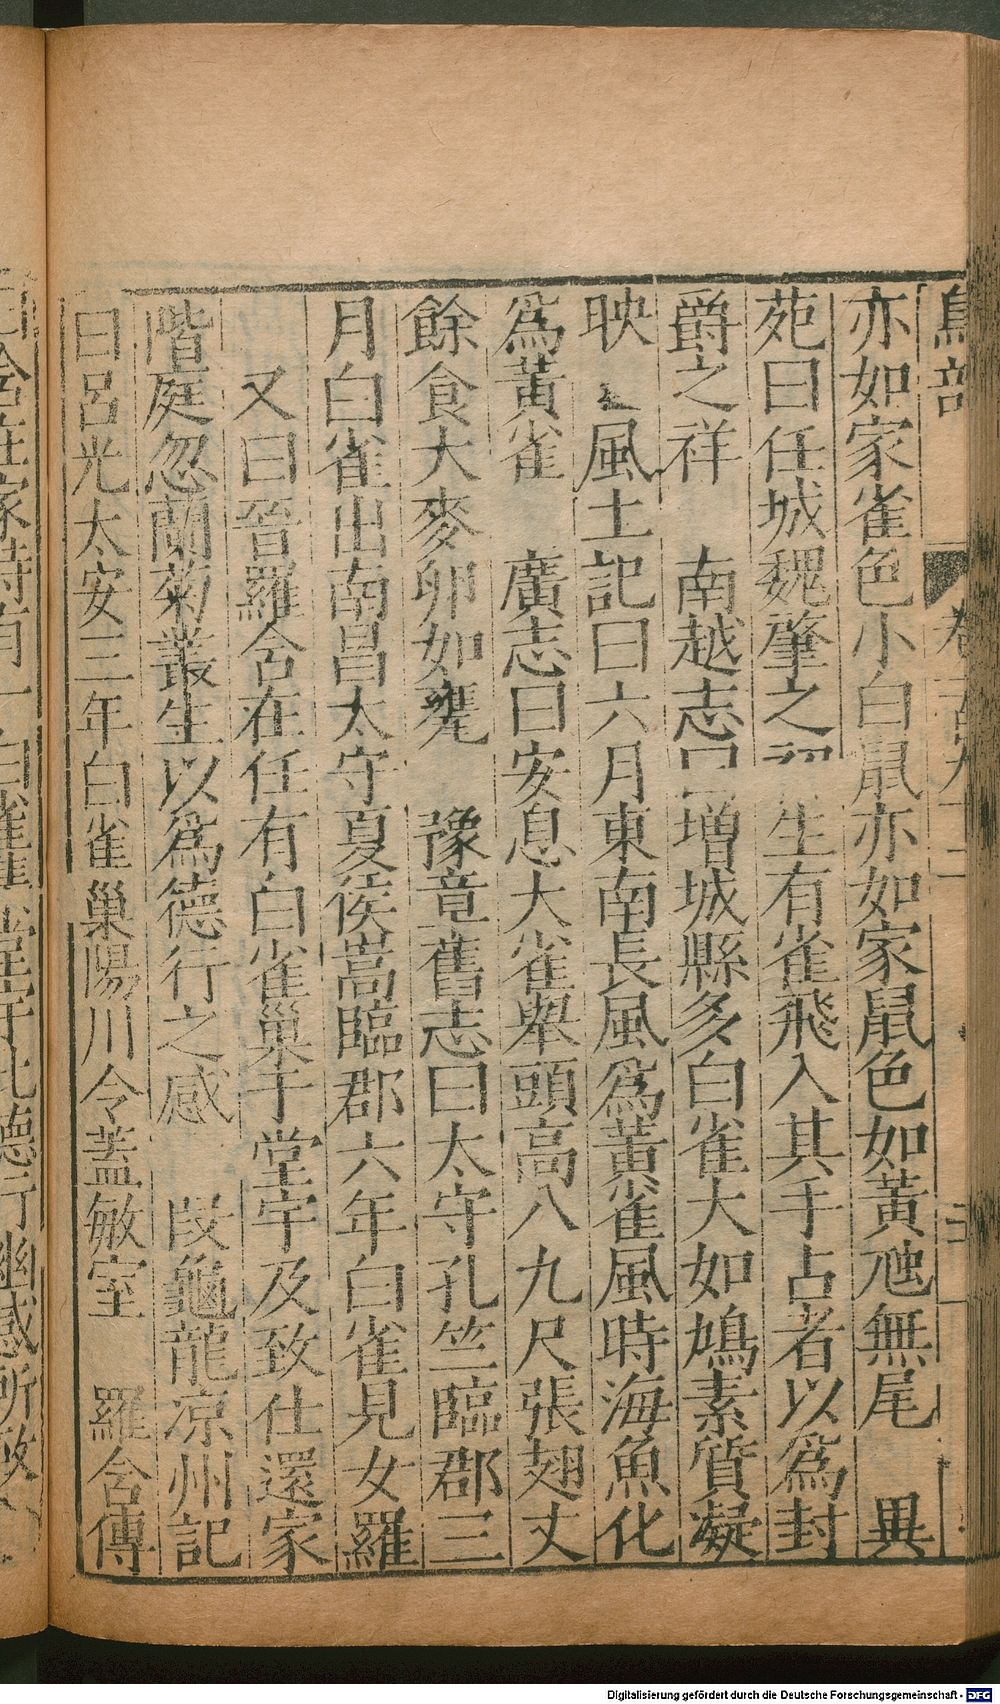 鳥部 卷 九十二 三
亦如家雀色小白鼠亦如家鼠色如黃虺無尾 異
苑曰任城魏肇之初生有雀飛入其手占者以爲封
爵之祥 南越志曰增城縣多白雀大如鳩素質凝
映 風土記曰六月東南長風爲黃雀風時海魚化
爲黃雀 廣志曰安息大雀舉頭高八九尺張翅丈
餘食大麥卵如甕 豫章舊志曰太守孔竺臨郡三
月白雀出南昌太守夏侯嵩臨郡六年白雀見女羅
又曰晉羅含在任有白雀巢于堂宇及致仕還家
階庭忽蘭菊叢生以爲德行之感 段龜龍凉州記
曰呂光太安三年白雀巢陽川令蓋敏室 羅含傳
曰含在家時有一白雀棲 堂宇此德行幽感所致
Digitalisierung gefördert durch die Deutsche Forschungsgemeinschaft - DFG